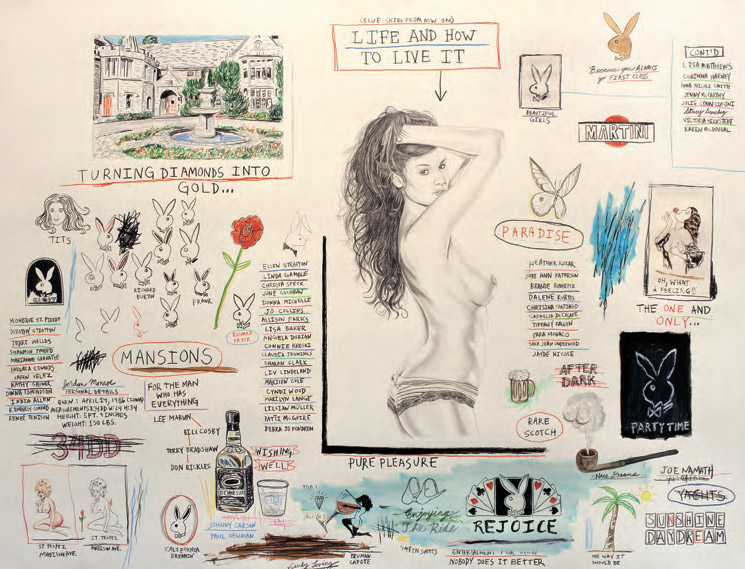 (BLUE SKIES FROM NOW ON)
LIFE AND HOW
TO LIVE IT
TURNING DIAMONDS INTO
GOLD...
BEAUTIFUL
GIRLS
Because you ALWAYS
go FIRST CLASS
CONT'D
LISA MATTHEWS
CORINNA HARNEY
ANNA NICOLE SMITH
JENNY McCARTHY
JULIE LYNN CIALINI
Stacy Sanchez
VICTORIA SILVSTEDT
KAREN McDOUGAL
MARTINI
TITS
RICHARD
BURTON
FRANK
RICHARD
PRYOR
ELLEN STRATTON
LINDA GAMBLE
CHRISTA SPECK
JUNE COCHRAN
DONNA MICHELLE
JO COLLINS
ALLISON PARKS
LISA BAKER
ANGELA DORIAN
CONNIE KRESKI
CLAUDIA JENNINGS
SHARON CLARK
LIV LINDELAND
MARILYN COLE
CYNDI WOOD
MARILYN LANGE
LILLIAN MÜLLER
PATTI McGUIRE
DEBRA JO FONDREN
MONIQUE ST. PIERRE
DOROTHY STRATTEN
TERRI WELLES
SHANNON TWEED
MARIANNE GRAVATTE
BARBARA EDWARDS
KAREN VELEZ
KATHY SHOWER
DONNA EDMONDSON
INDIA ALLEN
KIMBERLEY CONRAD
RENEE TENISON
MANSIONS
Jordan Monroe
PERSONAL DETAILS
HEIGHT: 5FT. 9 INCHES
WEIGHT: 130 LBS.
FOR THE MAN
WHO HAS
EVERYTHING
LEE MARVIN
BILL COSBY
TERRY BRADSHAW
DON RICKLES
34DD
WISHING
WELL
PARADISE
HEATHER KOZAR
JODI ANN PATERSON
BRANDE RODERICK
DALENE KURTIS
CHRISTINA SANTIAGO
CARMELLA DECESARE
TIFFANY FALLON
KARA MONACO
SARA JEAN UNDERWOOD
JAYDE NICOLE
OH, WHAT
A FEELING!!
THE ONE AND
ONLY...
AFTER
DARK
RARE
SCOTCH
PARTY TIME
PURE PLEASURE
ST. TROPEZ
MADISON AVE.
ST. TROPEZ
MADISON AVE.
CALIFORNIA
DREAMIN'
JOHNNY CARSON
PAUL NEWMAN
TRUMAN
CAPOTE
Enjoying
The Ride
SATIN SHEETS
REJOICE
NOBODY DOES IT BETTER
Nice Dreams
JOE NAMATH
YACHTS
SUNSHINE
DAYDREAM
THE WAY IT
SHOULD BE